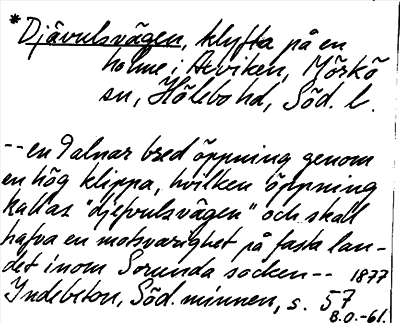 *Djävulsvägen, klyfta på en
holme i Axviken, Mörkö
sn, Hölebo hd, Söd. l.
--en 9 alnar bred öppning genom
en hög klippa, hvilken öppning
kallas "djefvulsvägen" och skall
hafva en motsvarighet på fasta lan-
det inom Sorunda socken-- 1877
Indebetou, Söd. minnen, s. 57
B.O.-61.